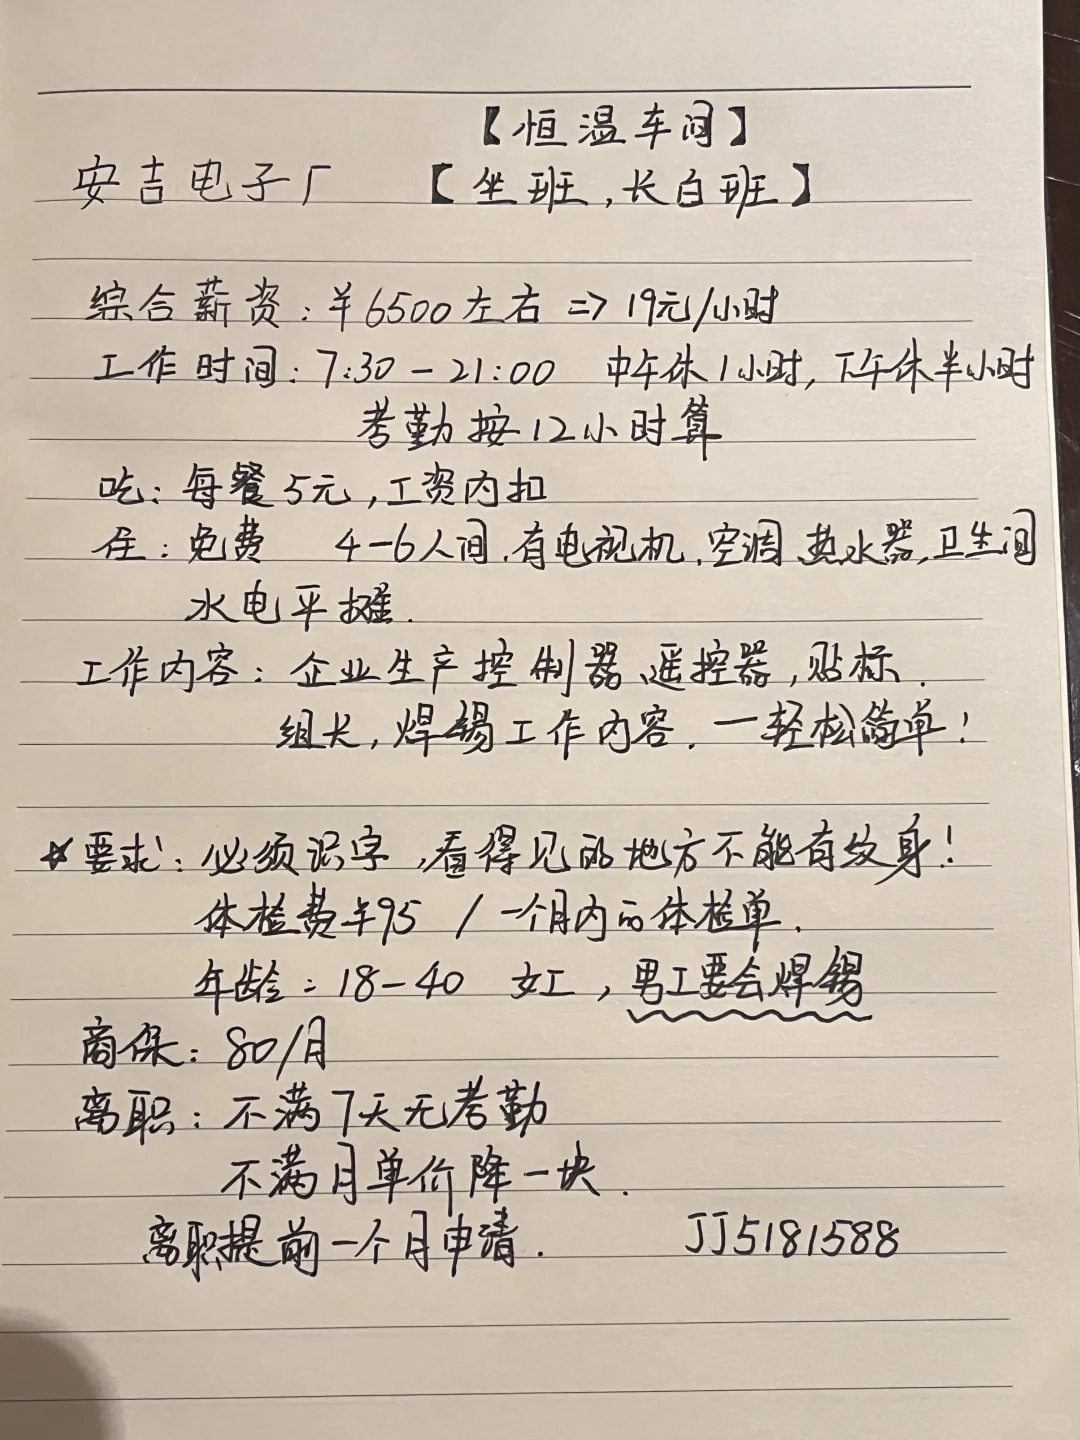 【恒温车间】
安吉电子厂 【坐班,长白班】
综合薪资:¥6500左右 => 19元/小时
工作时间:7:30-21:00 中午休1小时,下午休半小时
考勤按12小时算
吃:每餐5元,工资内扣
住:免费 4-6人间.有电视机.空调.热水器.卫生间
水电平摊.
工作内容:企业生产控制器.遥控器,贴标.
组长,焊锡工作内容.一轻松简单!
☆要求:必须识字,看得见的地方不能有纹身!
体检费¥95 / 一个月内的体检单.
年龄:18-40 女工,男工要会焊锡
商保:80/月
离职:不满7天无考勤
不满月单价降一块.
离职提前一个月申请. JJ5181588